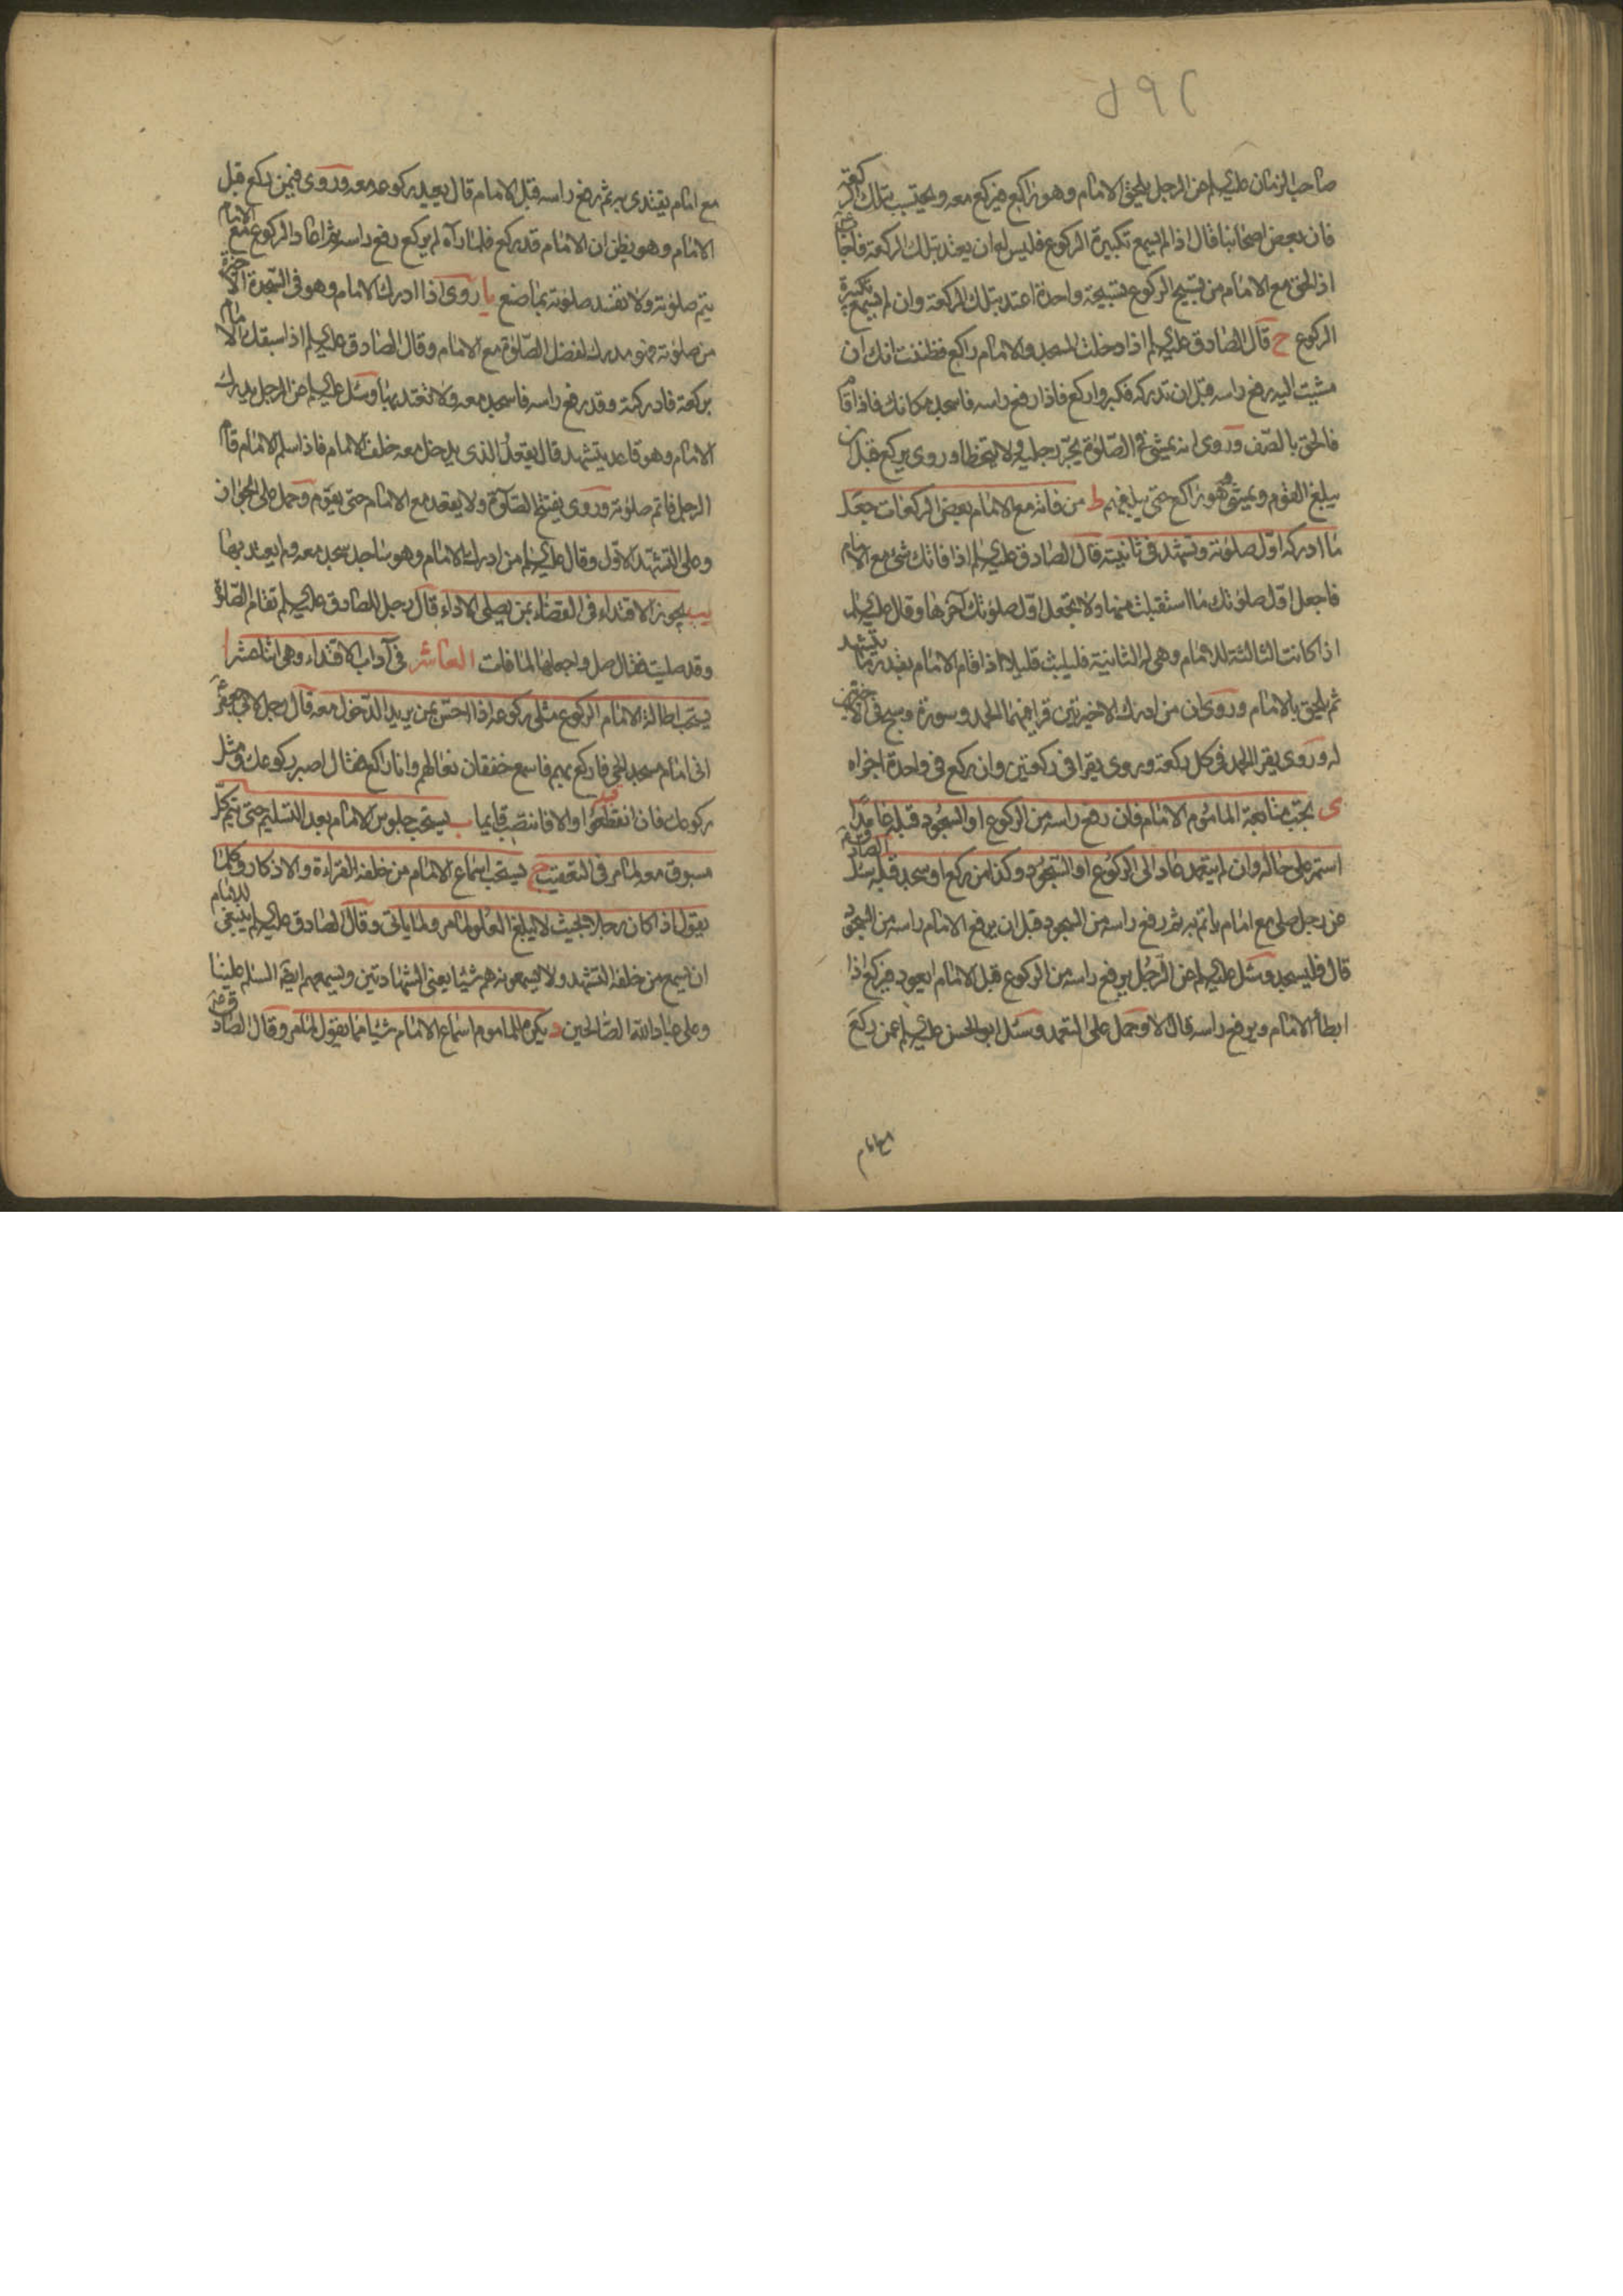 ٥٩٢
صاحب الزمان عليه السلم عن الرجل يلحق الامام وهو راكع فيركع معه ويحتسب بتلك الركعة
فان بعض اصحابنا قال اذا لم يسمع تكبيرة الركوع فليس له ان يعتد بتلك الركعة فاجاب
اذا لحق مع الامام من تسبيح الركوع تسبيحة واحدة اعتد بتلك الركعة وان لم يسمع تكبيرة
الركوع ح قال الصادق عليه السلم اذا دخلت المسجد والامام راكع فظننت انك ان
مشيت اليه رفع راسه قبل ان تدركه فكبر واركع فاذا رفع راسه فاسجد مكانك فاذا قام
فالحق بالصف وروى انه يمشي في الصلوة يجر رجليه ولا يتخطا وروى يركع قبل ان
يبلغ القوم ويمشي وهو راكع حتى يبلغهم ط من فاته مع الامام بعض الركعات جعل
ما ادركه اول صلوته وتشهد في ثانيته قال الصادق عليه السلم اذا فاتك شئ مع الامام
فاجعل اول صلوتك ما استقبلت منها ولا تجعل اول صلوتك آخرها وقال عليه السلم
اذا كانت الثالثة للامام وهي له الثانية فليلبث قليلا اذا قام الامام بقدر ما يتشهد
ثم يلحق بالامام وروى ان من ادرك الاخيرتين قرا فيهما الحمد وسورة وسبح في الاخيرتين
له وروى يقرا الحمد في كل ركعة وروى يقرا في ركعتين وان ركع في واحدة اجزاه
ى يجب متابعة الماموم الامام فان رفع راسه من الركوع او السجود قبله عامدا
استمر على حاله وان لم يتعمد عاد الى الركوع او السجود وكذا من ركع او سجد قبله سئل الصادق
عن رجل صلى مع امام ياتم به ثم رفع راسه من السجود قبل ان يرفع الامام راسه من السجود
قال فليسجد وسئل عليه السلم عن الرجل يرفع راسه من الركوع قبل الامام ايعود فيركع اذا
ابطأ الامام ويرفع راسه قال لا وحمل على التعمد وسئل ابو الحسن عليه السلم عمن ركع
مع امام
مع امام يقتدى به ثم رفع راسه قبل الامام قال يعيد ركوعه معه وروى فيمن ركع قبل
الامام وهو يظن ان الامام قد ركع فلما رآه لم يركع رفع راسه ثم اعاد الركوع مع الامام
يتم صلوته ولا تفسد صلوته بما صنع يا روى اذا ادرك الامام وهو في السجدة الاخيرة
من صلوته فهو مدرك لفضل الصلوة مع الامام وقال الصادق عليه السلم اذا سبقك الامام
بركعة فادركته وقد رفع راسه فاسجد معه ولا تعتد بها وسئل عليه السلم عن الرجل يدرك
الامام وهو قاعد يتشهد قال يقعد الذى يدخل معه خلف الامام فاذا سلم الامام قام
الرجل فاتم صلوته وروى يفتتح الصلوة ولا يقعد مع الامام حتى يقوم وحمل على الجواز
وعلى التشهد الاول وقال عليه السلم من ادرك الامام وهو ساجد سجد معه ولم يعتد بها
يب يجوز الاقتداء في القضاء بمن يصلي الاداء قال رجل للصادق عليه السلم تقام الصلوة
وقد صليت فقال صل واجعلها لما فات العاشر في آداب الاقتداء وهي اثنا عشر ا
يستحب اطالة الامام الركوع مثلى ركوعه اذا احس بمن يريد الدخول معه قال رجل لابي جعفر
انى امام مسجد الحي فاركع بهم فاسمع خفقان نعالهم وانا راكع فقال اصبر ركوعك ومثل
ركوعك فان انقطعوا والا فانتصب قايما ب يستحب جلوس الامام بعد التسليم حتى يتم كل
مسبوق معه لما مر في التعقيب ج يستحب اسماع الامام من خلفه القراءة والاذكار وكلما
يقول اذا كان رجلا بحيث لا يبلغ العلو لما مر ولما ياتى وقال الصادق عليه السلم ينبغى للامام
ان يسمع من خلفه التشهد ولا يسمعونه هم شيئا يعنى الشهادتين ويسمعهم ايضا السلم علينا
وعلى عباد الله الصالحين د يكره للماموم اسماع الامام شيئا مما يقول لما مر وقال الصادق